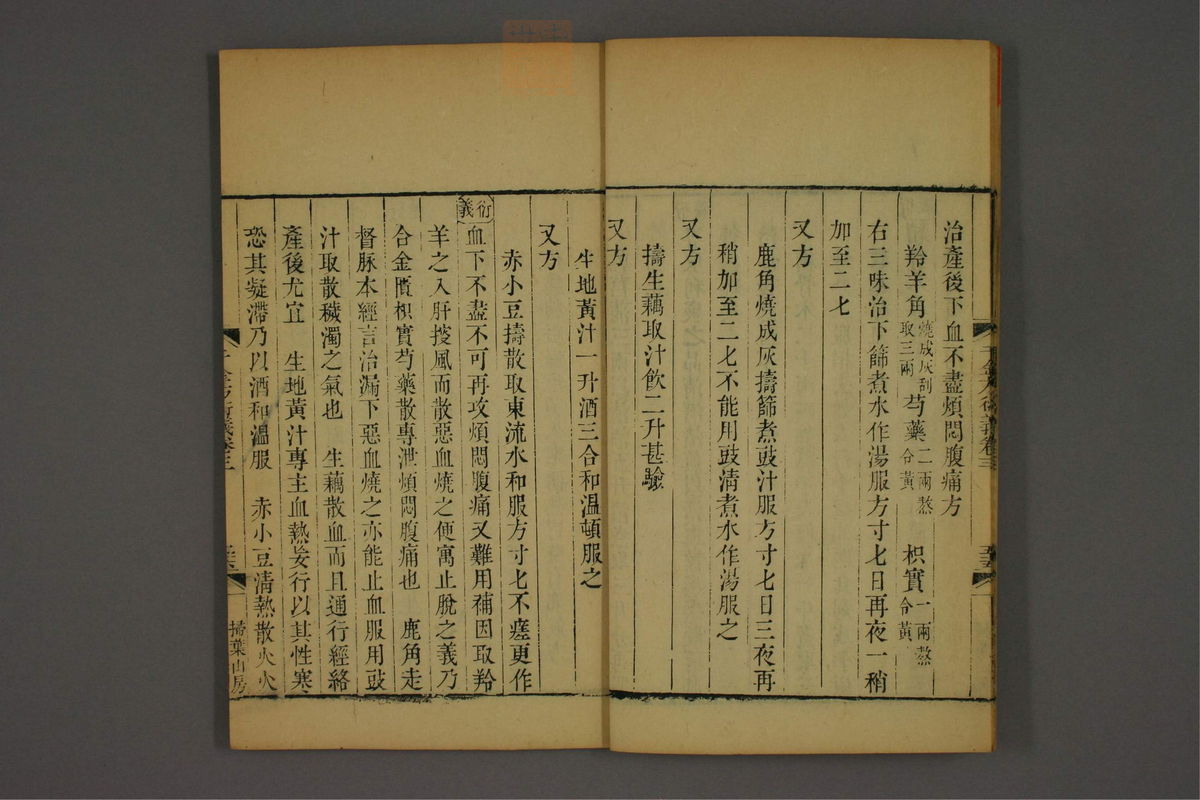 治產後下血不盡煩悶腹痛方
羚羊角燒成灰刮取三兩芍藥二兩熬令黃枳實一兩熬令黃
右三味治下篩煮水作湯服方寸匕日再夜一稍
加至二匕
又方
鹿角燒成灰擣篩煮豉汁服方寸匕日三夜再
稍加至二匕不能用豉清煮水作湯服之
又方
擣生藕取汁飲二升甚驗
又方
生地黃汁一升酒三合和溫頓服之
又方
赤小豆擣散取東流水和服方寸匕不瘥更作
衍義
血下不盡不可再攻煩悶腹痛又難用補因取羚
羊之入肝搜風而散惡血燒之便寓止脫之義乃
合金匱枳實芍藥散專泄煩悶腹痛也 鹿角走
督脉本經言治漏下惡血燒之亦能止血服用豉
汁取散穢濁之氣也 生藕散血而且通行經絡
產後尤宜 生地黃汁專主血熱妄行以其性寒
恐其凝滯乃以酒和溫服 赤小豆清熱散火火
千金方衍義卷三
掃葉山房